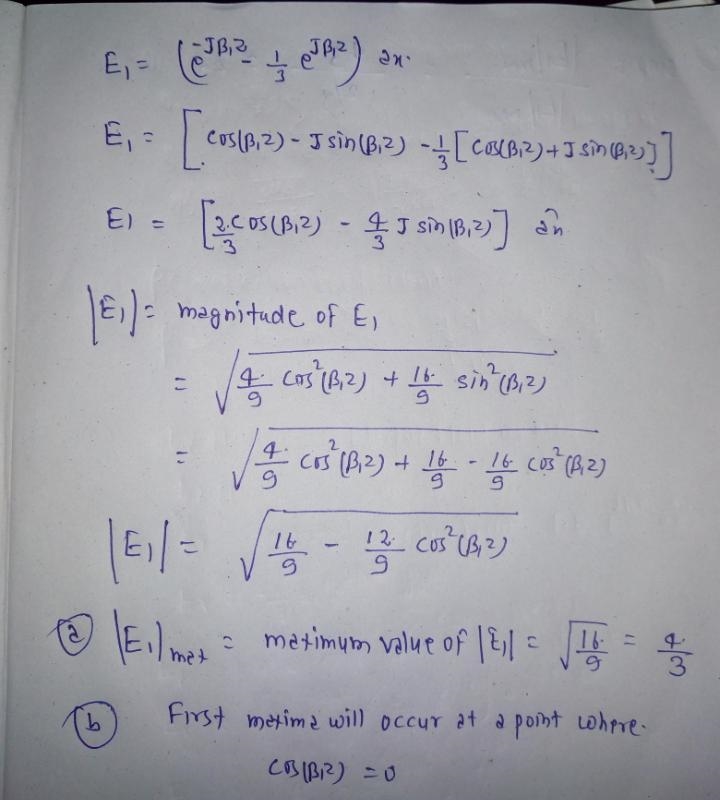 E₁ = (e^(-Jβ₁z) - 1/3 e^(Jβ₁z)) ax.
E₁ = [cos(β₁z) - J sin(β₁z) - 1/3 [cos(β₁z) + J sin(β₁z)]]
E1 = [2/3 cos(β₁z) - 4/3 J sin(β₁z)] âx
|E₁| = magnitude of E₁
= √(4/9 cos²(β₁z) + 16/9 sin²(β₁z))
= √(4/9 cos²(β₁z) + 16/9 - 16/9 cos²(β₁z))
|E₁| = √(16/9 - 12/9 cos²(β₁z))
(a) |E₁|max = maximum value of |E₁| = √(16/9) = 4/3
(b) First maxima will occur at a point where.
cos(β₁z) = 0